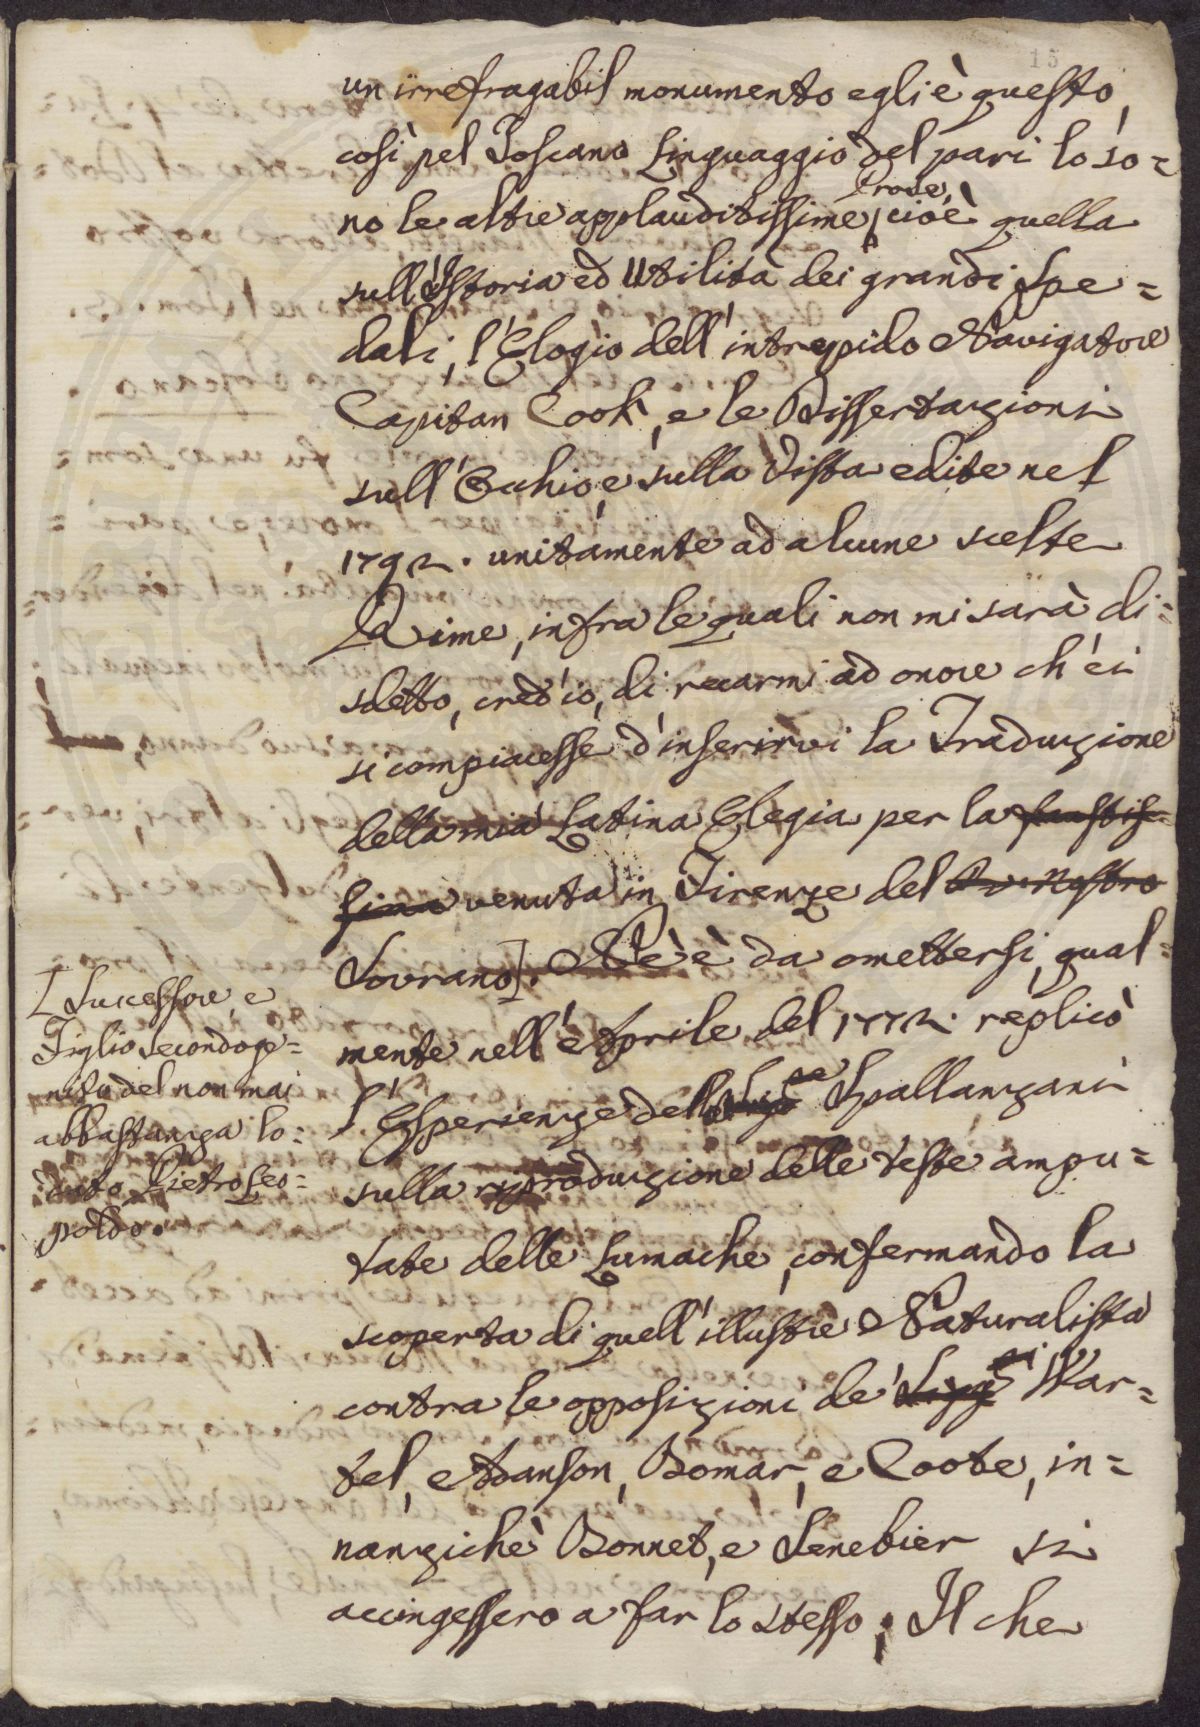 15
un irrefragabil monumento egli è questo,
così pel Toscano Linguaggio del pari lo so=
no le altre applauditissime Prose, cioè quella
sull'Istoria ed Utilità dei grandi Spe=
dali, l'Elogio dell'intrepido Navigatore
Capitan Cook, e le Dissertazioni
sull'Occhio, e sulla Vista edite nel
1792. unitamente ad alcune scelte
Rime, infra le quali non mi sarà di=
sdetto, cred'io, di recarmi ad onore ch'ei
si compiacesse d'inserirvi la Traduzione
della mia Latina Elegia per la faustis=
sima venuta in Firenze del nostro
Sovrano]. Nè è da omettersi, qual=
mente nell'Aprile del 1772. replicò
l'Esperienze dello Spallanzani
sulla riproduzione delle teste ampu=
tate delle Lumache, confermando la
scoperta di quell'illustre Naturalista
contra le opposizioni de' Sigg War=
tel, Adanson, Bomar, e Coote, in=
nanzichè Bonnet, e Senebier si
accingessero a far lo stesso; Il che
[Successore, e
Figlio secondoge=
nito del non mai
abbastanza lo=
dato Pietro Leo=
poldo.